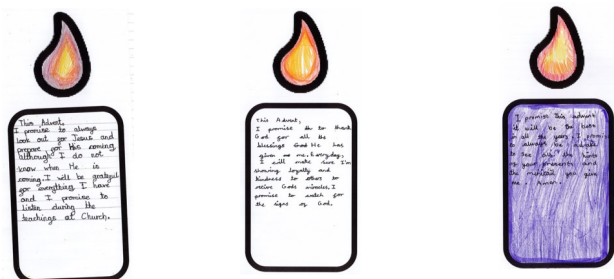 This Advent,
I promise to always
look out for Jesus and
prepare for His coming,
although I do not
know when He is
coming. I will be grateful
for everything I have
and I promise to
listen during the
teachings at Church.
This Advent,
I promise to thank
God for all the
blessings God He has
given me me. Everyday,
I will make sure I'm
showing loyalty and
kindness to others to
recive Gods miracles, I
promise to watch for
the signs of God.
I promise this advent
it will be the best
of all the years. I promise
to always be
to see all the hints
of your presents, and
the you give
me. Amen.